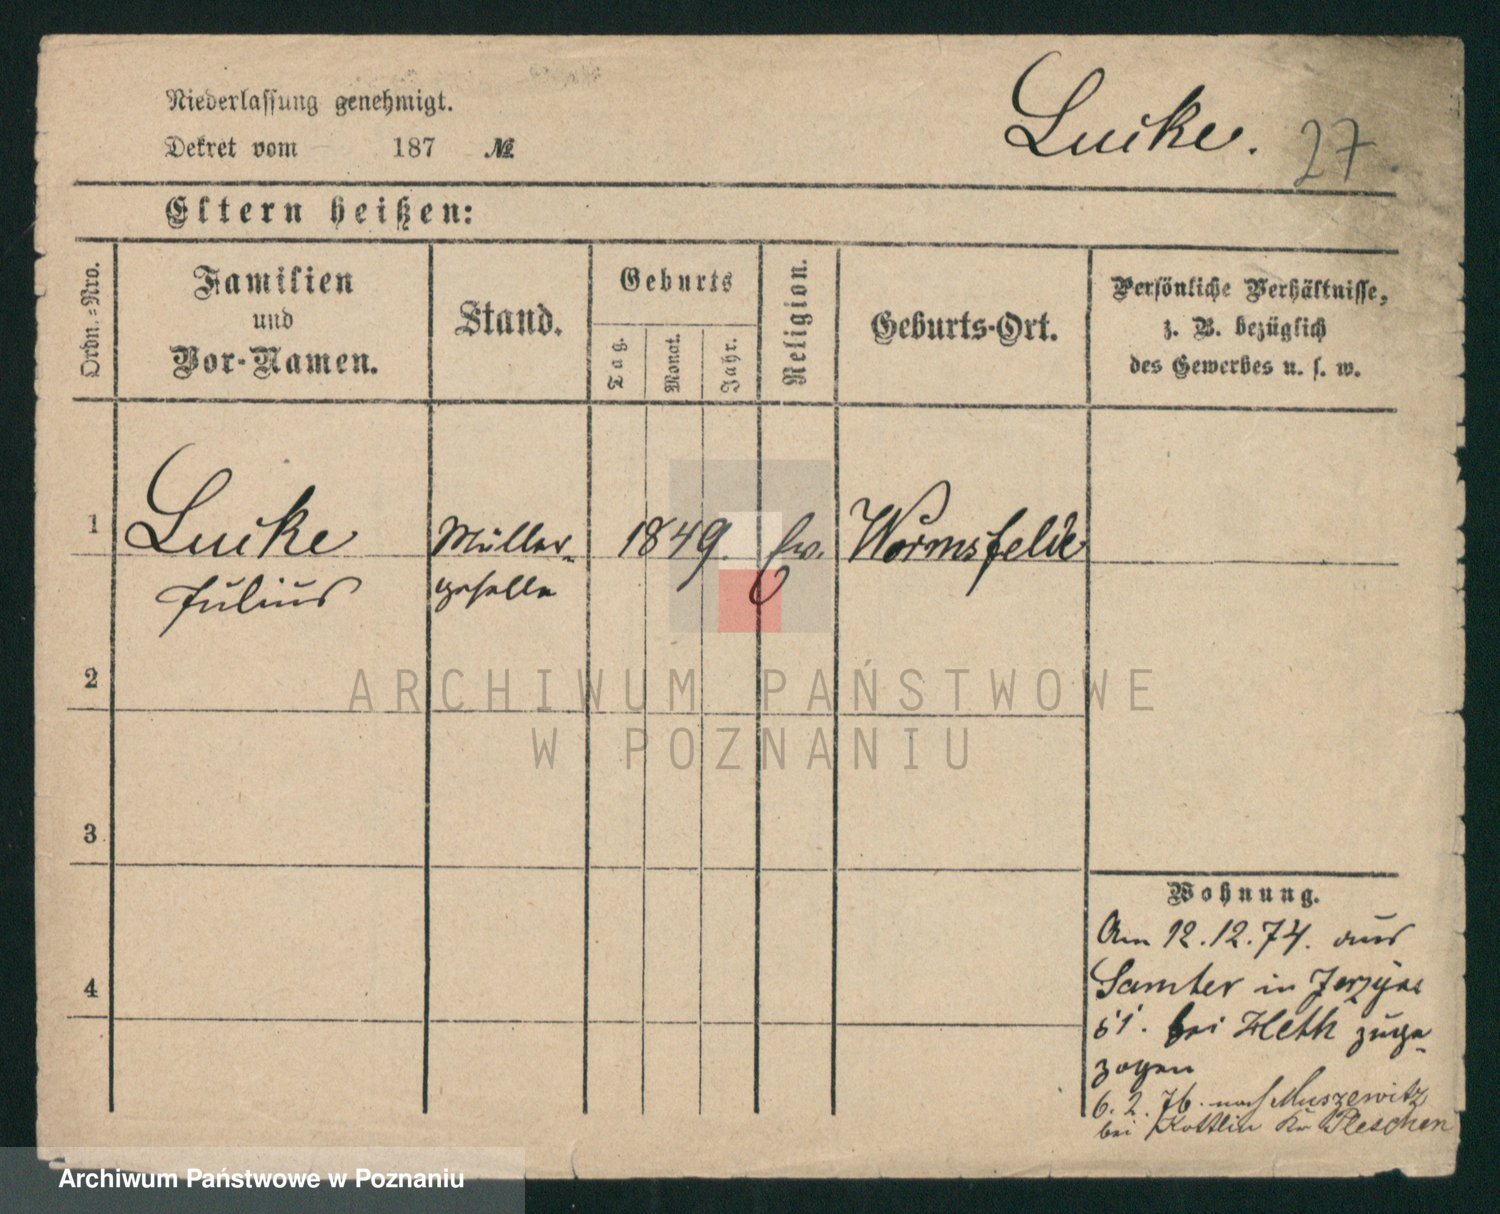 Niederlassung genehmigt.
Dekret vom 187 №
Lucke. 27
Eltern heißen:
Ordn.=Nro.
Familien
und
Vor-Namen.
Stand.
Geburts
Tag.
Monat.
Jahr.
Religion.
Geburts-Ort.
Persönliche Verhältnisse,
z. B. bezüglich
des Gewerbes u. s. w.
1 Lucke Müller- 1849. ev. Wormsfelde
Julius geselle
2
3
4
Wohnung.
Am 12.12.74. aus
Samter in Jerzyce
bei zuge-
zogen
6. 2. 76. nach Muszewitz
bei Kottlin Kr Pleschen
ARCHIWUM PAŃSTWOWE
W POZNANIU
Archiwum Państwowe w Poznaniu